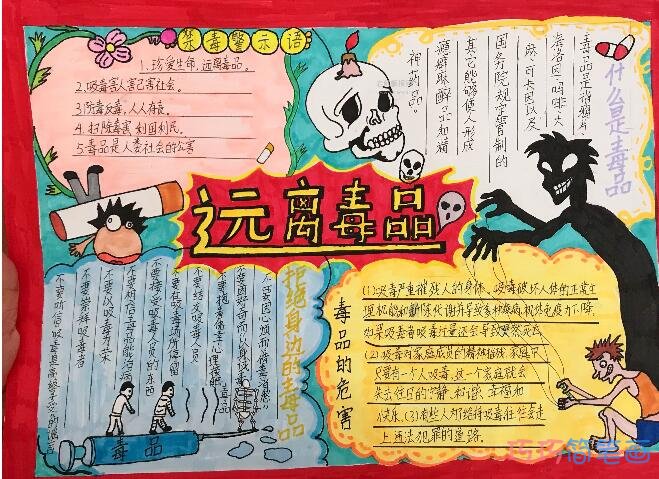 禁毒警示语
1.珍爱生命,远离毒品。
2.吸毒害人害己害社会。
3.防毒反毒,人人有责。
4.扫除毒害 利国利民。
5.毒品是人类社会的公害
什么是毒品
毒品是指鸦片
海洛因、吗啡、大
麻、可卡因以及
国务院规定管制的
其它能够使人形成
瘾癖麻醉品和精
神药品。
远离毒品
拒绝身边的毒品
不要因心烦而借毒消愁
不要因好奇而以身试毒
不要抱着侥幸心理接触毒品
不要结交吸毒人员
不要在吸毒场所停留
不要接受吸毒人员的东西
不要听信毒品能治病
不要以吸毒为荣
不要崇拜吸毒者
不要听信吸毒是高级享受的谣言
毒品
毒品的危害
(1)吸毒严重摧残人的身体、吸毒破坏人体的正常生
理机能和新陈代谢并导致多种疾病,机体免疫力下降,
如果吸毒者吸毒过量还会导致突然死亡
(2)吸毒对家庭成员的精神摧残 家庭只
只要有一个人吸毒,这个家庭就会
失去往日的宁静、和谐、幸福和
快乐、(3)有些人却给将吸毒往往会走
上违法犯罪的道路.
巧巧简笔画